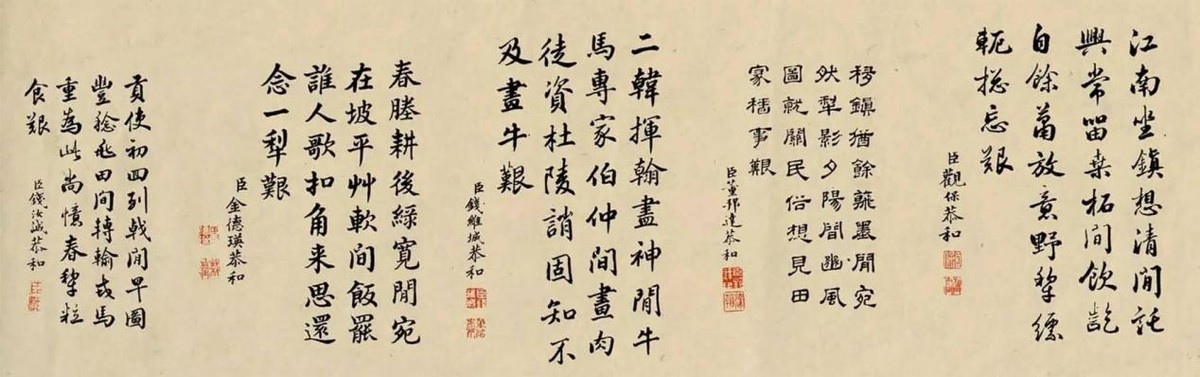 江南坐鎮想清閒託
興常留桒柘間飲齕
自餘蕭放意野犂縹
軛揔忘艱
臣觀保恭和
移鎮猶餘蘸墨閒宛
然犁影夕陽間豳風
圖就關民俗想見田
家穡事艱
臣董邦達恭和
二韓揮翰盡神閒牛
馬專家伯仲間畫肉
徒資杜陵誚固知不
及畫牛艱
臣錢維城恭和
春塍耕後綠寬閒宛
在坡平艸軟間飯罷
誰人歌扣角来思還
念一犁艱
臣金德瑛恭和
貢使初回列戟閒早圖
豐稔田間轉輸戎馬
重為此尚憶春犂粒
食艱
臣錢汝誠恭和